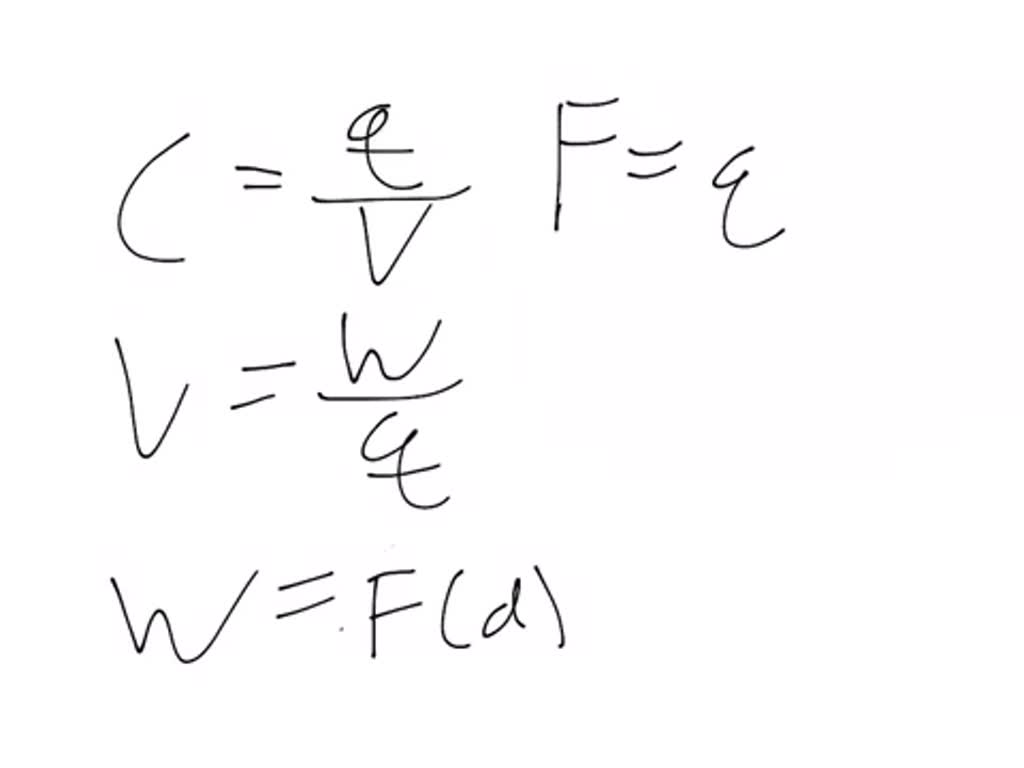 C = q/V F = q
V = W/q
W = F(d)